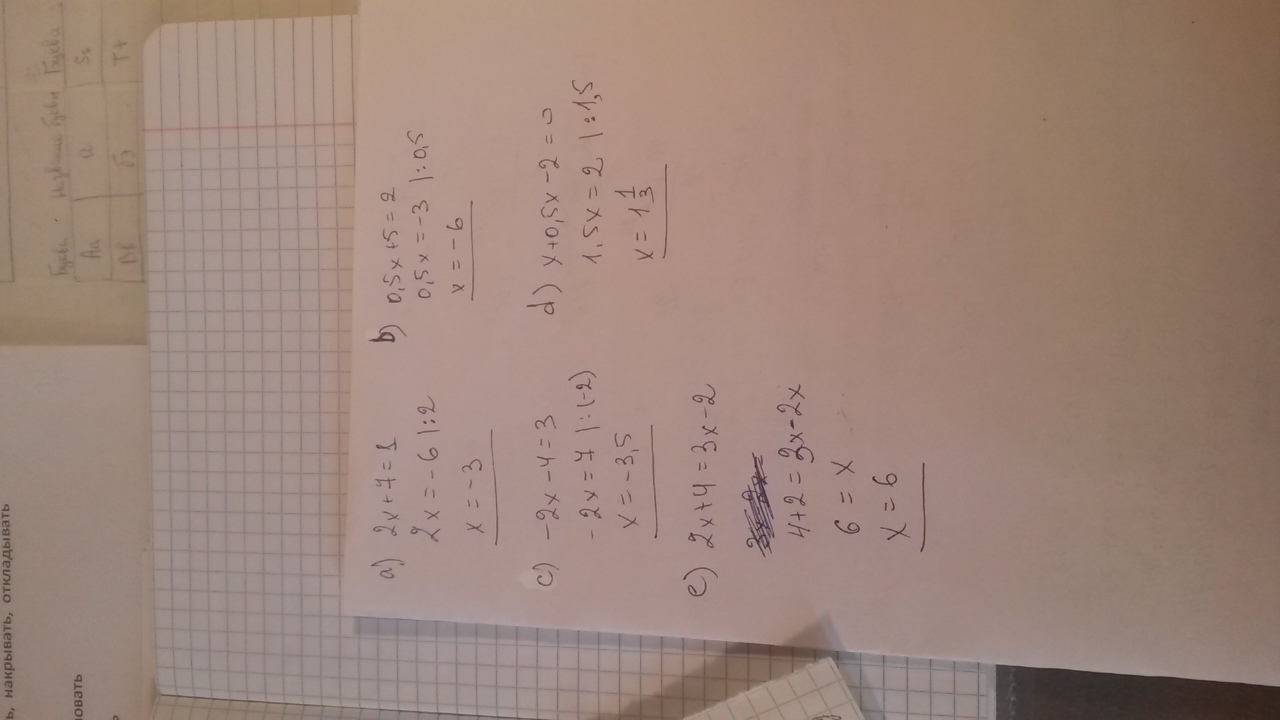 a) 2x+7=1
2x=-6 |:2
x=-3
b) 0,5x+5=2
0,5x=-3 |:0,5
x=-6
c) -2x-4=3
-2x=7 |:(-2)
x=-3,5
d) x+0,5x-2=0
1,5x=2 |:1,5
x=1 1/3
e) 2x+4=3x-2
4+2=3x-2x
6=x
x=6
Буква Название буквы Буква
Aa а Ss
Bb бэ Tt
ь, накрывать, откладывать
овать